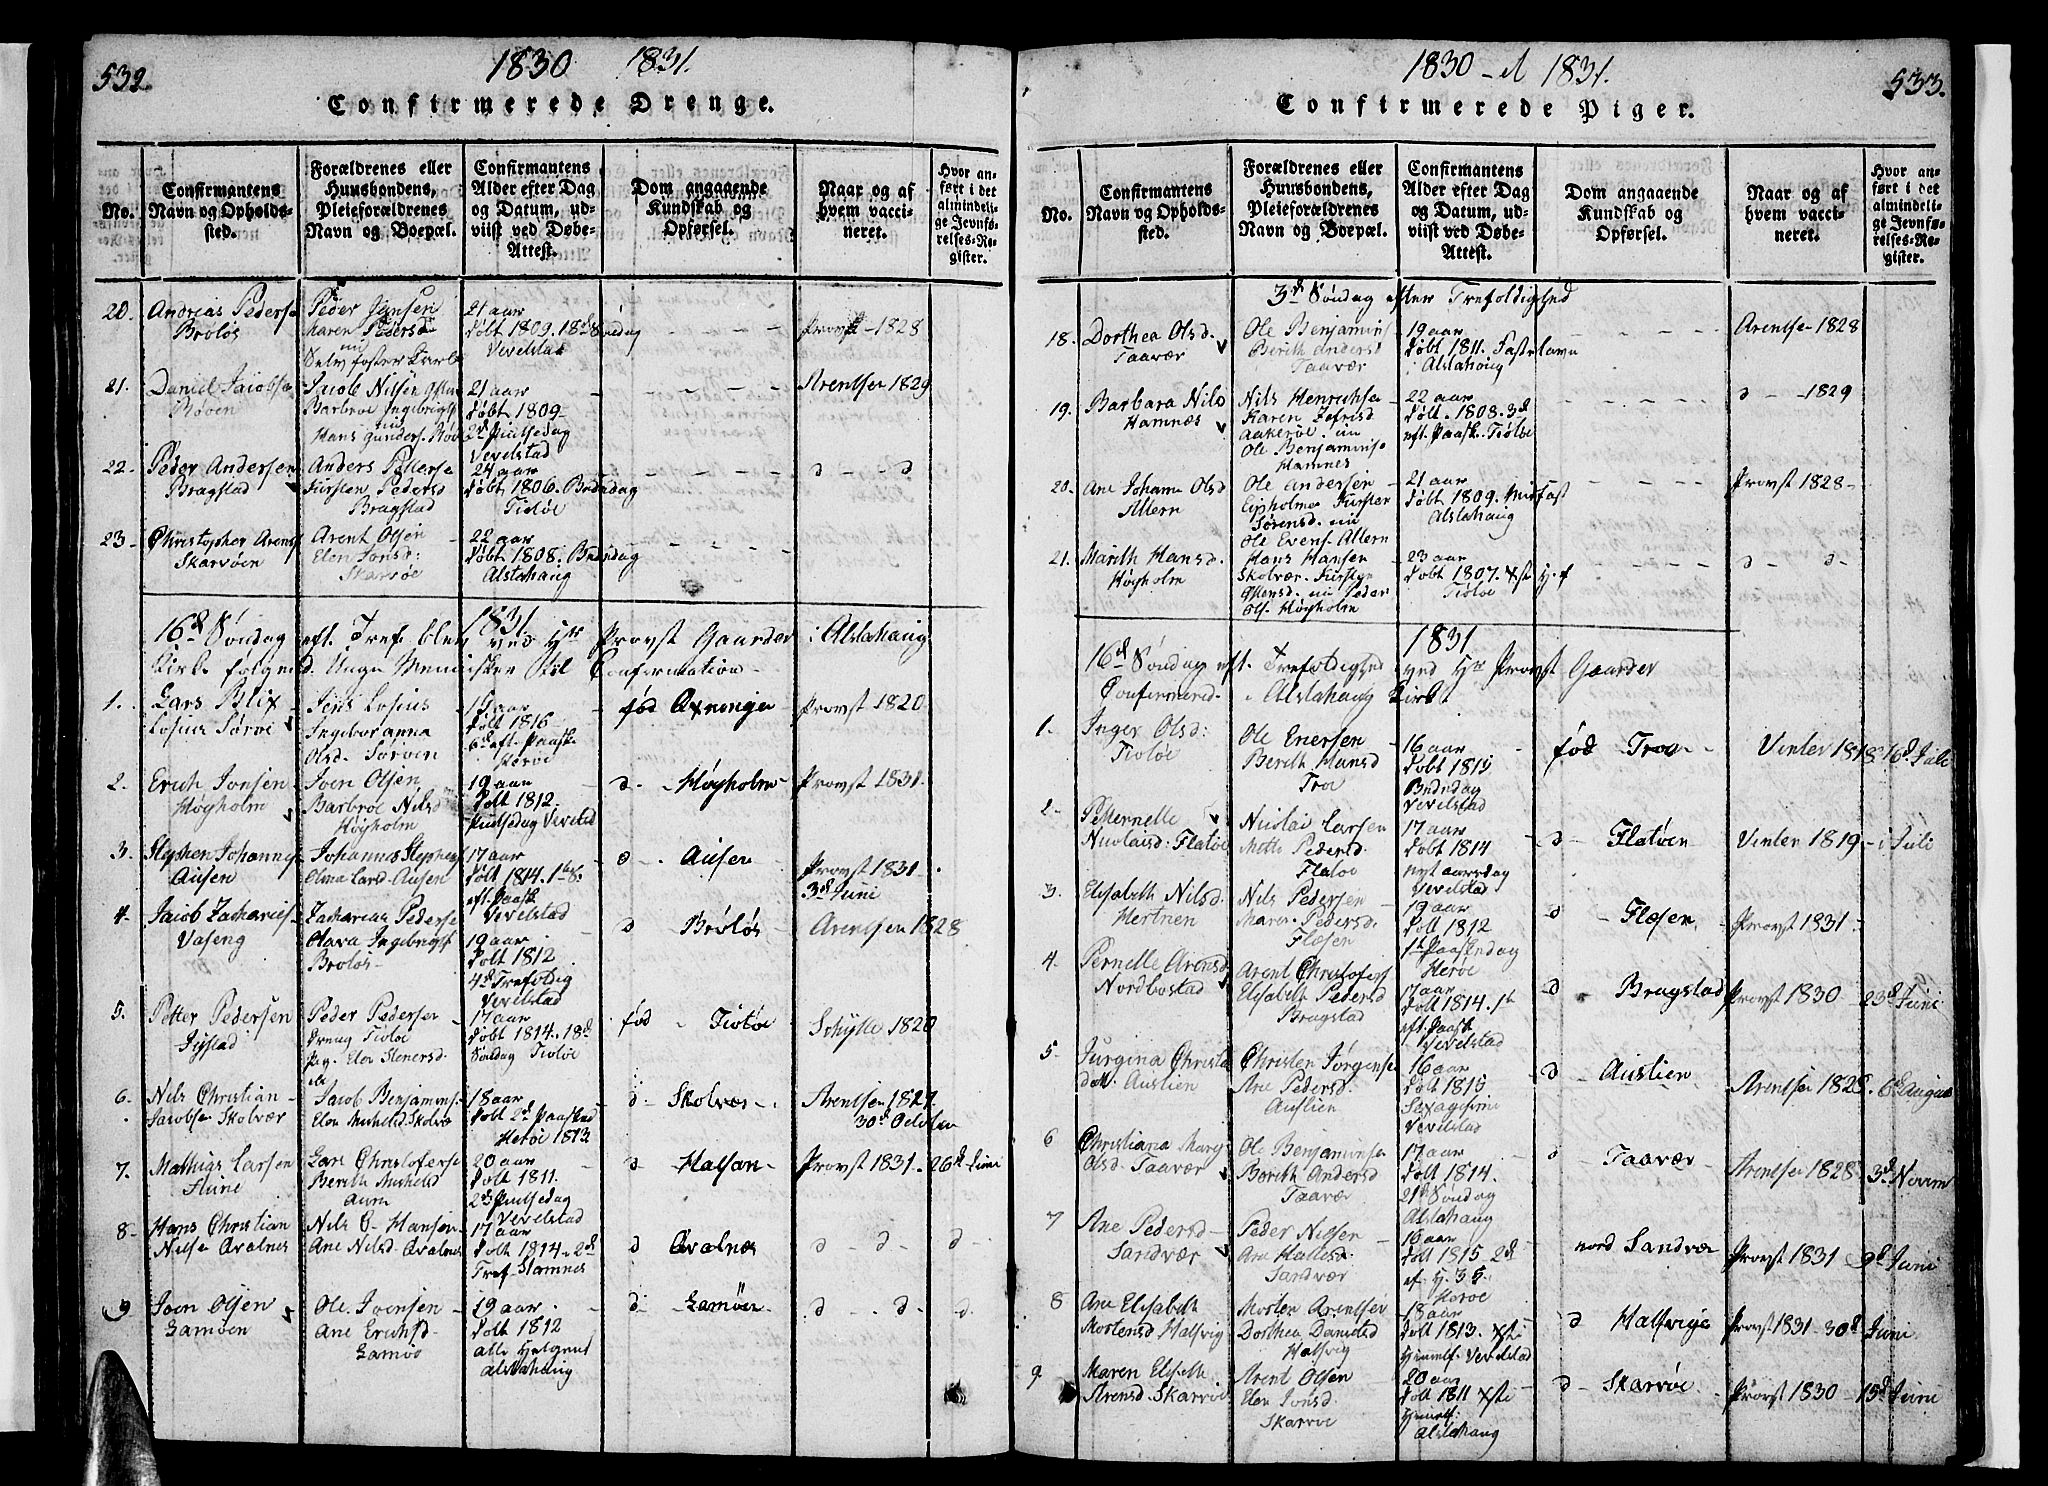 532.
1830 1831.
Confirmerede Drenge.
No.
Confirmantens
Navn og Opholds-
sted.
Forældrenes eller
Huusbondens,
Pleieforældrenes
Navn og Boepæl.
Confirmantens
Alder efter Dag
og Datum, ud-
viist ved Døbe-
Attest.
Dom angaaende
Kundskab og
Opførsel.
Naar og af
hvem vacci-
neret.
Hvor an-
ført i det
almindeli-
ge Jevnfø-
relses-Re-
gister.
20. Andreas Peders
Brøløs
Peder Jansen
Maren Pedersd
nu
21 aar
døbt 1809. 18d Søndag
Vevelstad
Provst 1828
21. Daniel Jacobse
Røven
Jacob Nilsen
Barbroe Ingebrigts
nu
Hans Gunders. Røv
21 aar
døbt 1809
2d Pintsedag
Vevelstad
Arentsen 1829
22. Peder Andersen
Bragstad
Anders Pettersen
Kirsten Pedersd
Bragstad
24 aar
døbt 1806.
Tiøtøe
d - - d
23 - Christopher Arens
Skarvøen
Arent Olsen
Elen Jonsd:
Skarvøe
22 aar
døbt 1808.
Alstahaug
1831
16d Søndag eft. Tref. blev ved Hr Provst Gaarder i Alstahaug
Kirke følgend. Unge Mennisker til Confirmation
1. Lars Blix
Losius Sørvi
Jens Losius
Ingebor anna
Olsd. Sørøen
15 aar
døbt 1816
6d eft. Paaske
Herøe
fød
Provst 1820
2. Erich Jonsen
Høyholm
Joen Olsen
Barbroe Nilsd
Høyholm
19 aar
døbt 1812.
Pintsedag Vevelstad
d - Høyholm
Provst 1831.
3. Stephen Johannes
Ausen
Johannes Stephens
Elma Larsd Ausen
17 aar
døbt 1814. 1te S.
eft. Paask
Vevelstad
d - Ausen
Provst 1831
3d Juni
4. Jacob Zacharies
Vaseng
Zacharias Peders
Olava Ingebrigts
Brøløs
19 aar
døbt 1812
4d Trefoldig
Vevelstad
d Brøløs
Arentsen 1828
5. Petter Pedersen
Systad
Peder Pedersen
Dreng Tiøtøe
Pig. Elen Stenersd.
17 aar
døbt 1814. 18d
Søndag Tiøtøe
fød - Tiøtøe
Schytte 1820
6. Nils Christian
Jacobse Skolvær
Jacob Benjamins
Elen Michelsd Skolvæ
18 aar
døbt 2d Paasked
Herøe 1813
d. Skolvær
Arentsen 1827.
30d October
7. Mathias Larsen
Lars Christofers
Berith Michelsd
20 aar
døbt 1811.
2d Pintsedag
Vevelstad
d - Halsan
Provst 1831. 26d Juni
8 - Hans Christian
Nilse Qvalnes
Nils C. Hansen
Ane Nilsd. Qvalnes
17 aar
døbt 1814. 2d
Tref. Stamnes
d Qvalnes
d - d - d -
9 Joen Olsen
Lamøen
Ole Joensen
Ane Erichsd.
Lamøe
19 aar.
døbt 1812
alle Helgens
Alstahaug
d - Lamøen
d - d - d.
1830 - et 1831.
533.
Confirmerede Piger.
No.
Confirmantens
Navn og Opholds-
sted.
Forældrenes eller
Huusbondens,
Pleieforældrenes
Navn og Boepæl.
Confirmantens
Alder efter Dag
og Datum, ud-
viist ved Døbe-
Attest.
Dom angaaende
Kundskab og
Opførsel.
Naar og af
hvem vacci-
neret.
Hvor an-
ført i det
almindeli-
ge Jevnfø-
relses-Re-
gister.
3d Søndag efter Trefoldighed
18. Dorthea Olsd.
Taavær
Ole Benjamins
Berith Andersd
Taavær
19 aar
døbt 1811. Fastelavn
Alstahaug
Arentsen 1828
19. Barbara Nils
Hamnæs
Nils Henrichse
Karen
nu
Ole Benjaminse
Hamnes
22 aar
døbt. 1808. 3d
eft. Paask. Tiøtøe
d - - 1829
20. Ane Johanna Olsd
Altern
Ole Andersen
Kirsten
Sørensd. nu
Ole Evens. Altern
21 aar
døbt 1809.
Alstahaug
Provst 1828 -
21. Marith Hansd.
Høyholm
Hans Hansen
Skolvær. Kirsten
nu Peder
Ols. Høyholm
23 aar
døbt 1807.
Tiøtøe
d - d -
1831
16d Søndag eft. Trefoldighed ved Hr Provst Gaarder
Confirmered. i Alstahaug Kirke
1. Inger Olsd:
Tiøtøe
Ole Enersen
Berith Hansd
Troe
16 aar
døbt 1815
Vevelstad
fød Troe
Vinter 1818. 16d Juli
2 - Petternelle
Nicolaisd. Flatøe
Nicolai Larsen
Mette Pedersd.
Flatøe
17 aar
døbt 1814
nyt aarsdag
Vevelstad
d - Flatøen
Vinter 1819 - i Juli
3. Elisabeth Nilsd.
Hertnen
Nils Pedersen
Maren Pedersd.
Flæsen
19 aar
døbt 1812
1te Paaskedag
Herøe
d - Flæsen
Provst 1831.
4. Pernelle Arensd
Nordbostad
Arent Christofers
Elisabeth Pedersd
Bragstad
17 aar
døbt 1814. 1te
eft. Paask
Vevelstad
d - Bragstad
Provst 1830 - 23d Juni
5 - Jurgina Christe
datt. Austien
Christen Jørgense
Ane Pedersd.
Austien
16 aar
døbt 1815
Sexagesima
Vevelstad
d - Austien
Arentsen 1828. 6d August
6 Christiana Marg
Olsd. Taavær
Ole Benjaminse
Berith Andersd
Taavær
17 aar
døbt 1814.
21d Søndag
Alstahaug
d Taavær
Arentsen 1828. 3d Novem
7 Ane Pedersd
Sandvær
Peder Nilsen
Ane
Sandvær
16 aar
døbt 1815 2d
Herøe
nord Sandvær
Provst 1831 9d Juni
8 Ane Elisabeth
Mortensd Halsvig
Morten Arentsen
Dorthea Danielsd
Halsvig
18 aar
døbt 1813.
Himmelf. Vevelstad
d Halsvige
Provst 1831 - 30d Juni
9. Maren Elisabeth
Arensd. Skarvøe
Arent Olsen
Elen Jonsd.
Skarvøe
20 aar
døbt 1811
Himmelf.
Alstahaug
d - Skarvøe
Provst 1830 - 15d Juni